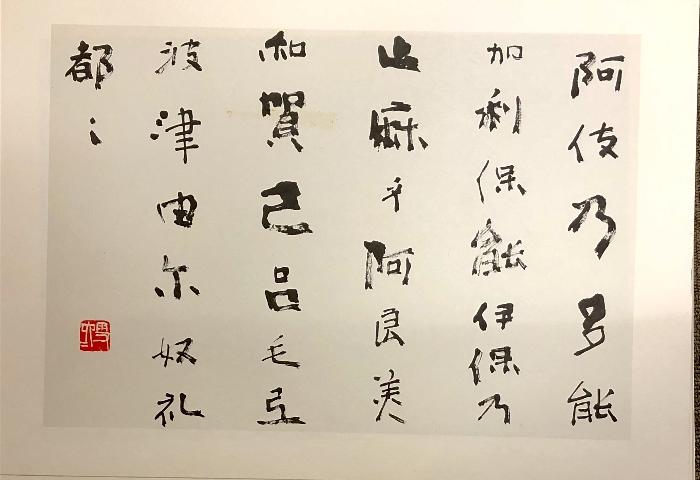 阿伎乃多能
加利保能伊保乃
止麻乎阿良美
和賀己呂毛弖
波津由尓奴礼
都々